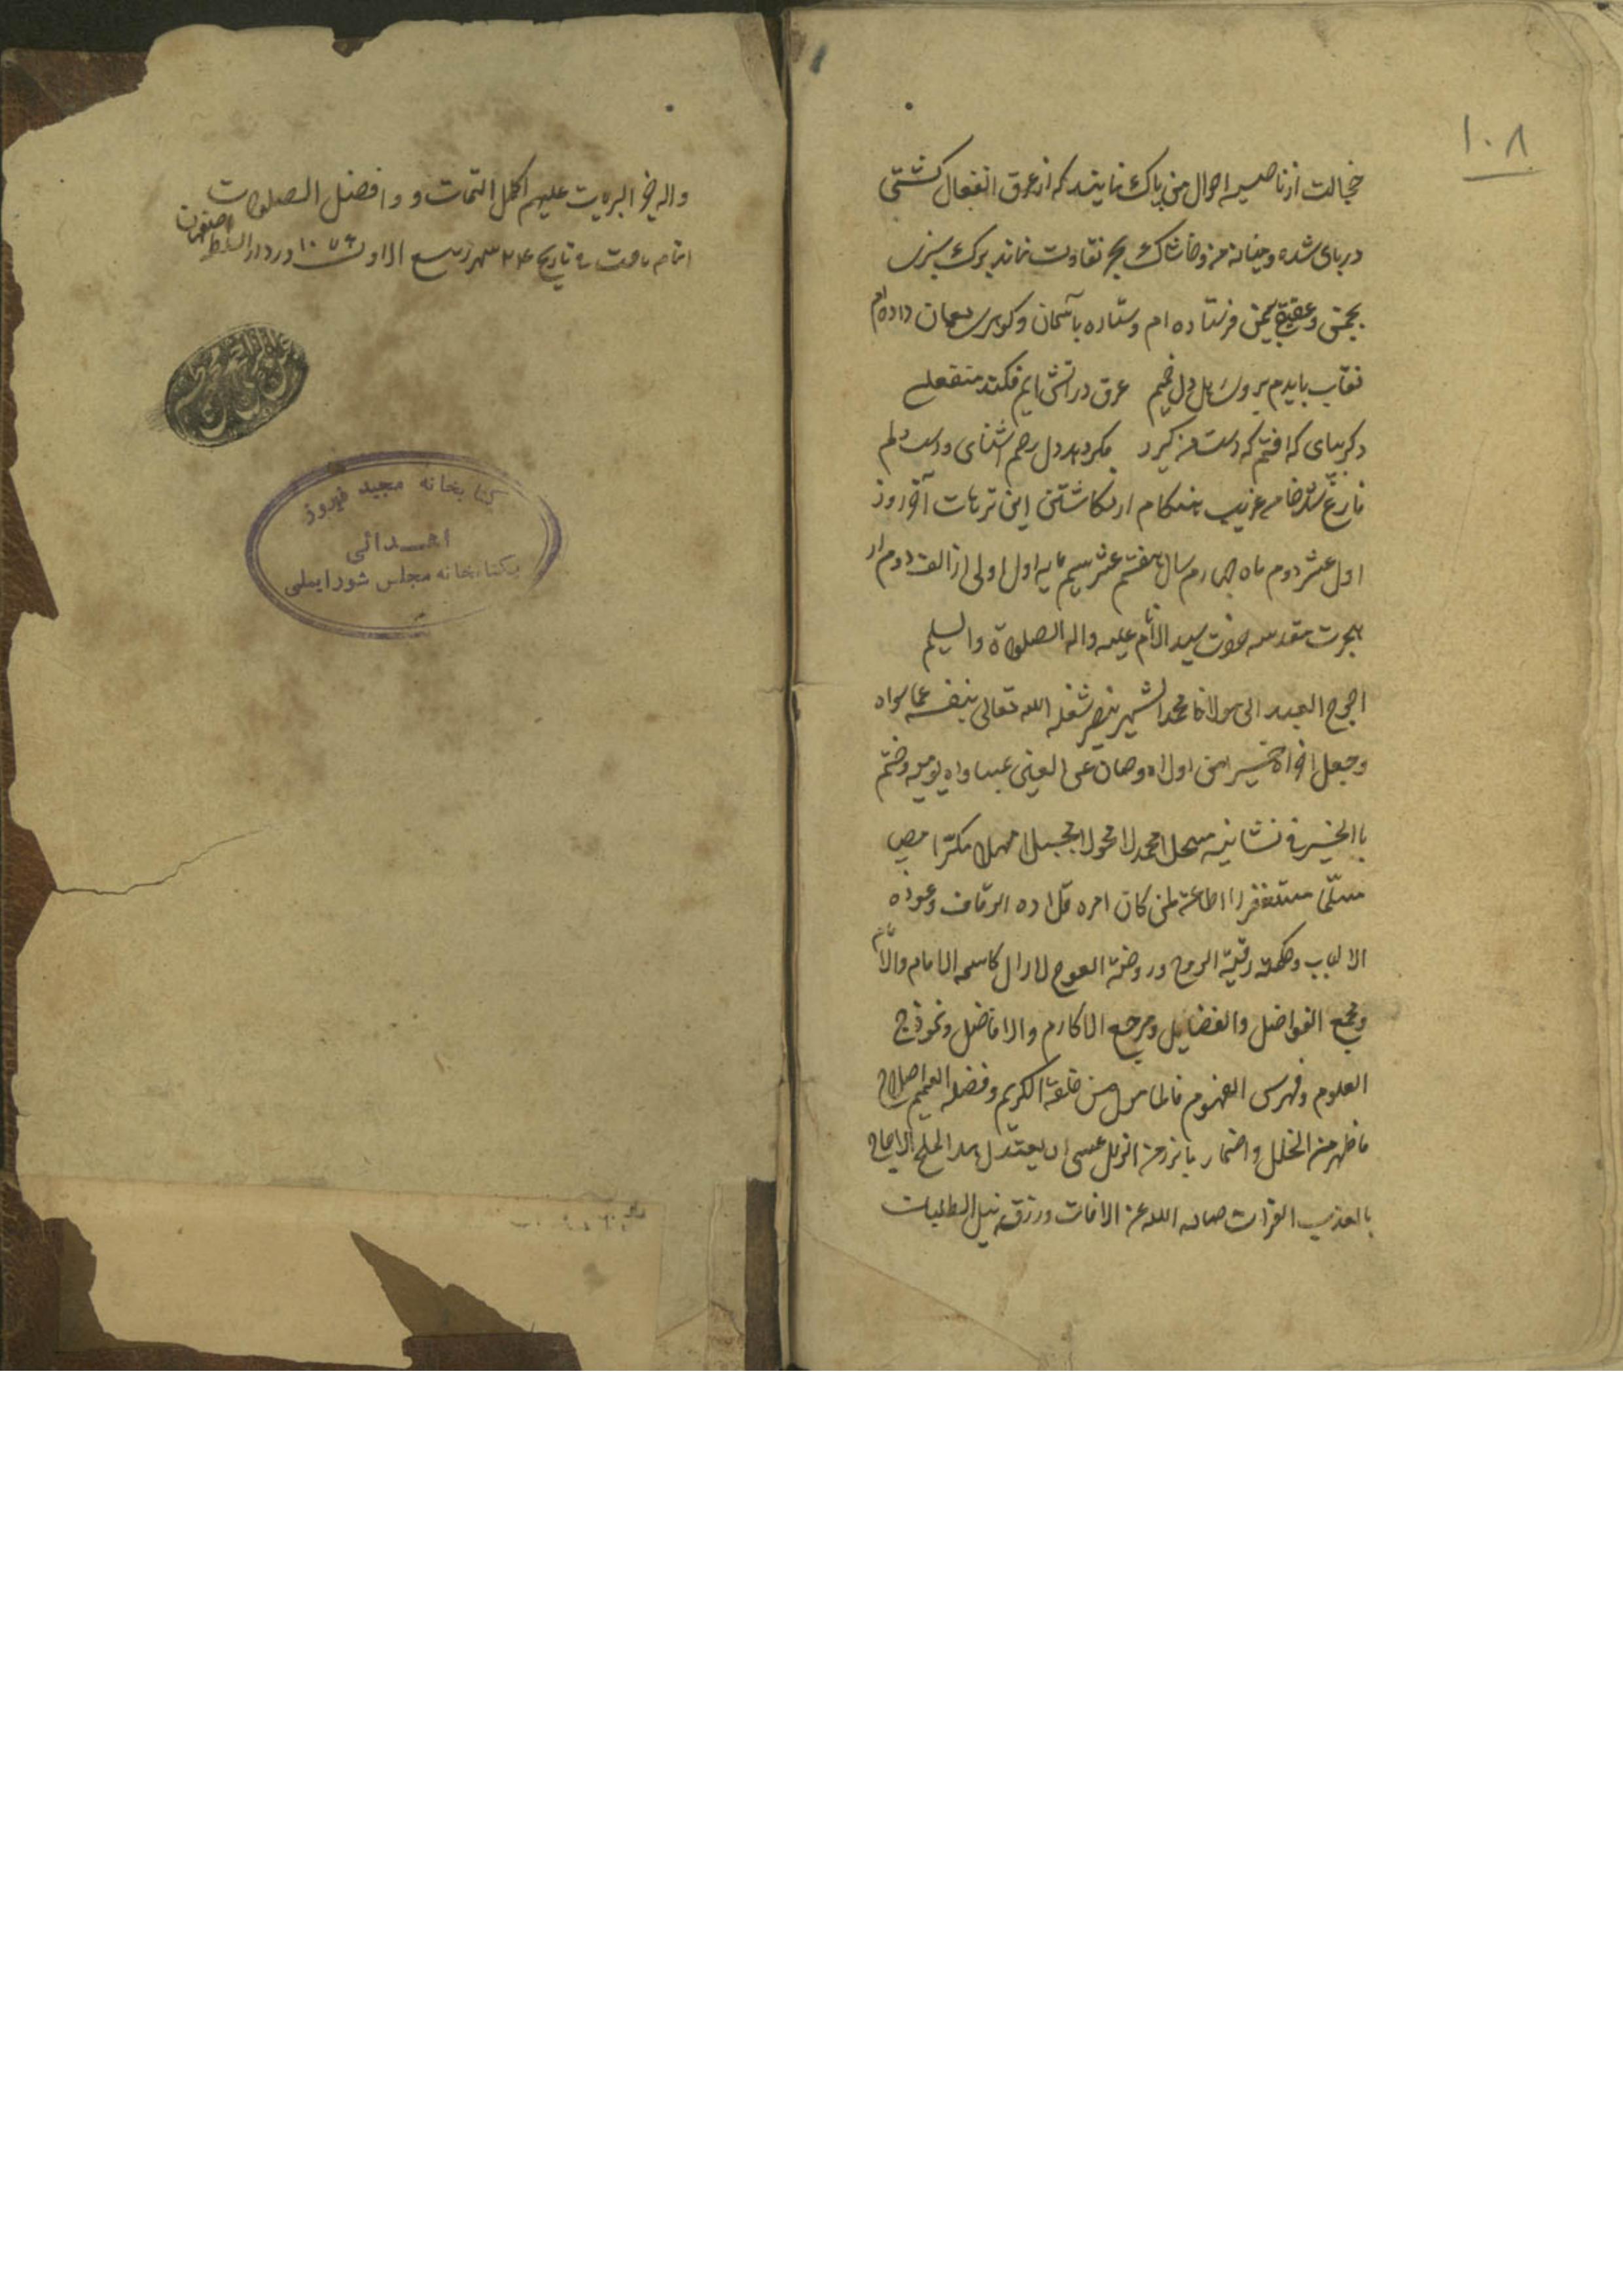 ١٠٨
خجالت از ناصیه احوال من پاک نمایند که از عرق انفعال کشتی
دریای شده و میانه من و خاشاک بحر تفاوت نماند برک سبزی
بچمن و عقیق بیمن فرستاده ام و ستاره باسمان و کوهر بعمان داده ام
نقاب بایدم بر وی دل عرق در اتش این فکند منفعلی
دکر بپای که افتم که دست من کیرد مکر دهد دل رحم اشنای و دست دلم
فارغ شد خامه غریب هنکام از نکاشتن این ترهات آخر روز
اول عشر دوم ماه چهارم سال هفتم عشر سیم مایه اول اولی از الف دوم از
هجرت مقدسه حضرت سید الانام علیه واله الصلوة والسلیم
احوج العبید الی مولانا محمد الشهیر بنصیر شغله الله تعالی بنفسه عما سواه
وجعل اخراه خیرا من اولاه وصان عن العین یومیه وختم
بالخیر فی
مستغفرا اطاعة لمن کان امره قلاده الرقاب وعوذه
الالباب وحکمته رقیة الروح وروضة لازال کاسمه الامام والامام
ومجمع الفواضل والفضایل ومرجع الاکارم والافاضل ونموذج
العلوم وفهرس الفهوم فالمامول من خلقه الکریم وفضله العمیم اصلاح
ما ظهر من الخلل من الزلل عسی ان یعتدل هذا الملح الاجاج
بالعذب الفرات صانه الله عن الافات ورزقه نیل الطلبات
واله خیر البریت علیهم اکمل التحیات و وافضل الصلوات
اتمام یافت فی تاریخ ٢٤ شهر ربیع الاول ١٠٧٦ در دار السلطنه اصفهان
کتابخانه مجید فیروز
اهدائی
بکتابخانه مجلس شورایملی